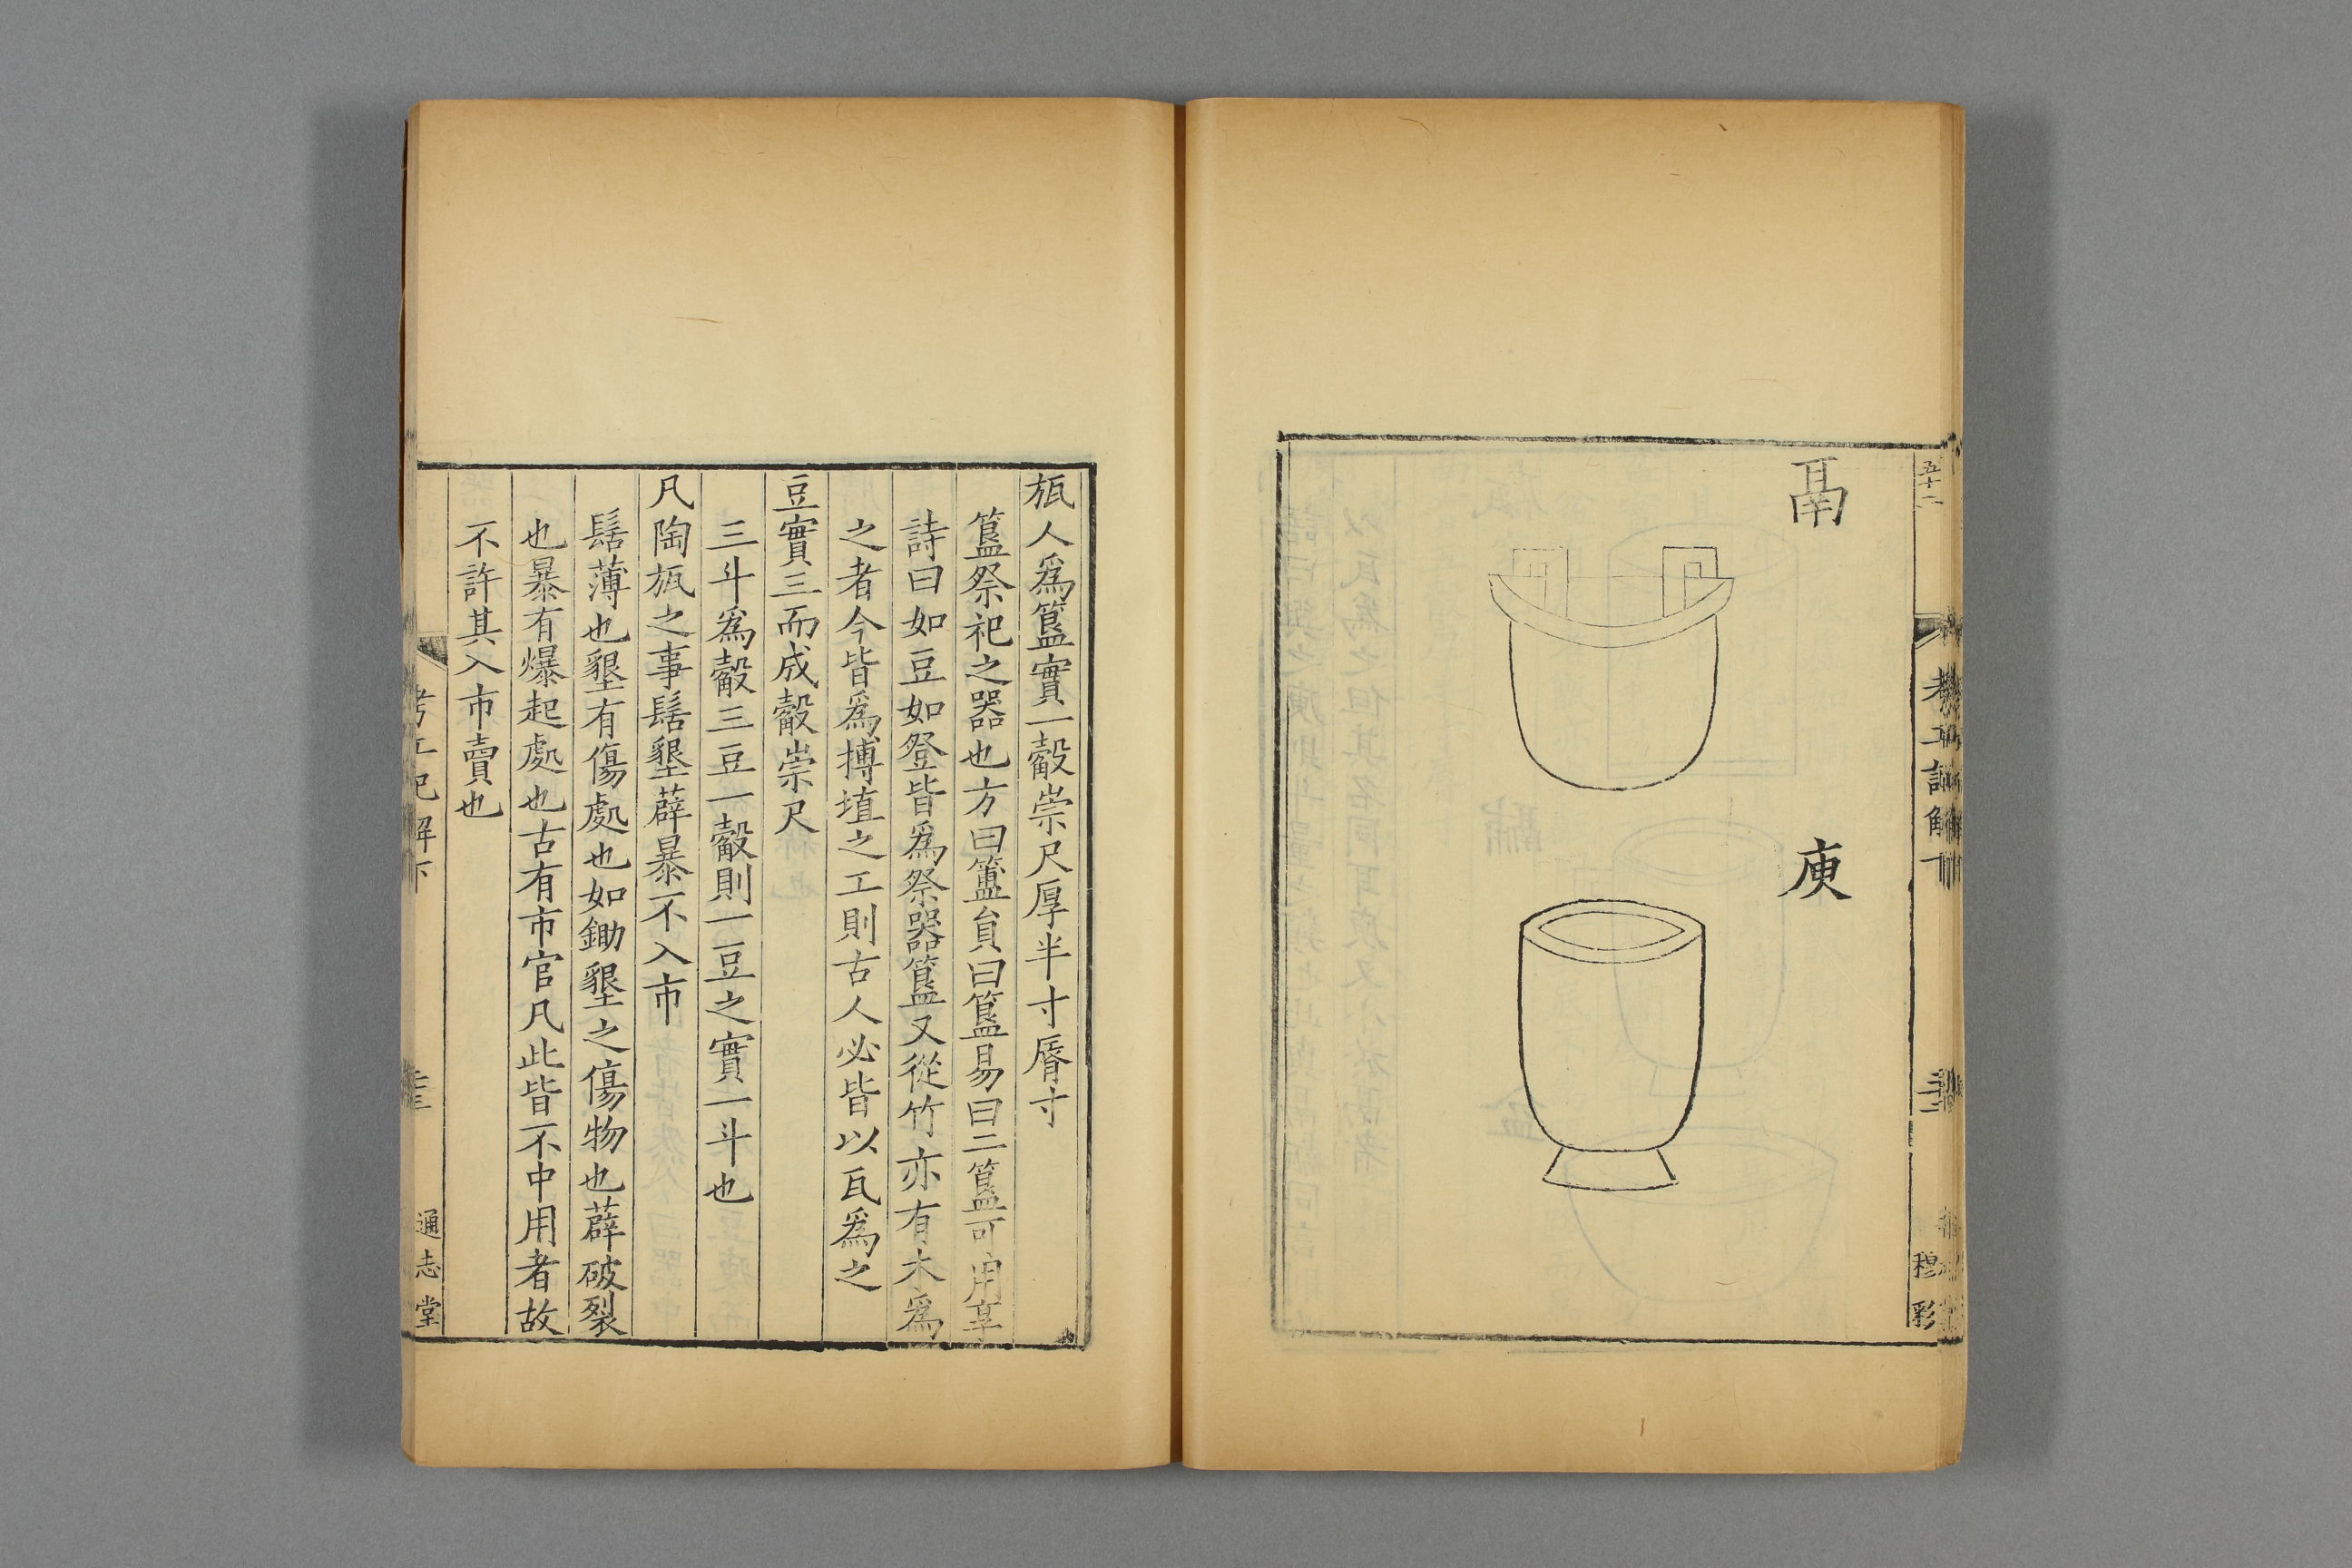 五十二
鬲
庾
穆
彩
瓬人爲簋實一觳崇尺厚半寸脣寸
簋祭祀之器也方曰簠員曰簋易曰二簋可用享
詩曰如豆如登皆爲祭器簋又從竹亦有木爲
之者今皆爲摶埴之工則古人必皆以瓦爲之
豆實三而成觳崇尺
三斗爲觳三豆一觳則一豆之實一斗也
凡陶瓬之事髺墾薜暴不入市
髺薄也墾有傷處也如鋤墾之傷物也薜破裂
也暴有爆起處也古有市官凡此皆不中用者故
不許其入市賣也
考工記解下
通志堂